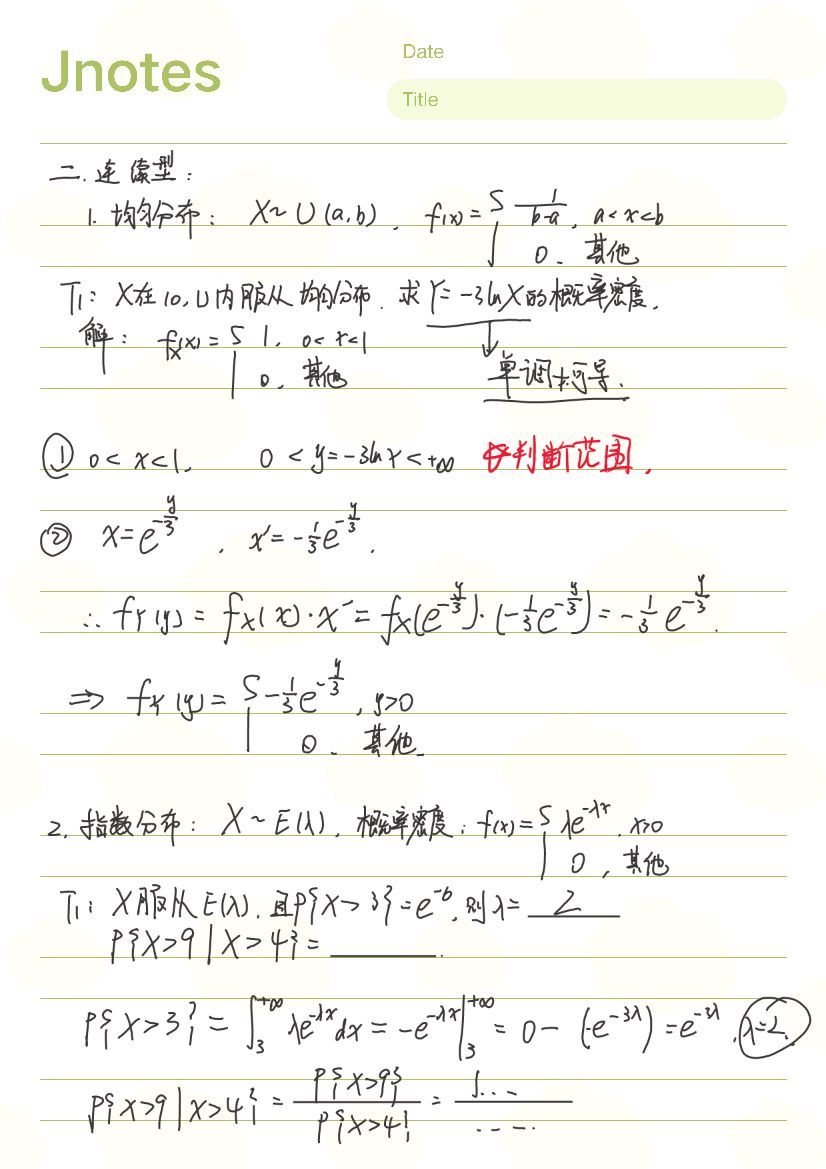 Jnotes
Date
Title
二. 连续型:
1. 均匀分布: X~U(a,b), f(x)={ 1/(b-a), a<x<b
0. 其他
T1: X在(0,1)内服从均匀分布. 求Y=-3lnX的概率密度.
解: fX(x)={ 1, 0<x<1
0, 其他
单调+可导.
① 0<x<1, 0<y=-3lnx<+∞ 判断范围.
② x=e^(-y/3), x'=-1/3 e^(-y/3).
∴ fY(y)=fX(x)·x'=fX(e^(-y/3))·(-1/3 e^(-y/3))=-1/3 e^(-y/3).
⇒ fY(y)={ -1/3 e^(-y/3), y>0
0. 其他
2. 指数分布: X~E(λ), 概率密度: f(x)={ λe^(-λx), x>0
0, 其他
T1: X服从E(λ), 且P{X>3}=e^(-6), 则λ= 2
P{X>9|X>4}=______.
P{X>3}=∫_3^(+∞) λe^(-λx)dx=-e^(-λx)|_3^(+∞)=0-(-e^(-3λ))=e^(-3λ), λ=2.
P{X>9|X>4}=P{X>9}/P{X>4}=∫.../.....